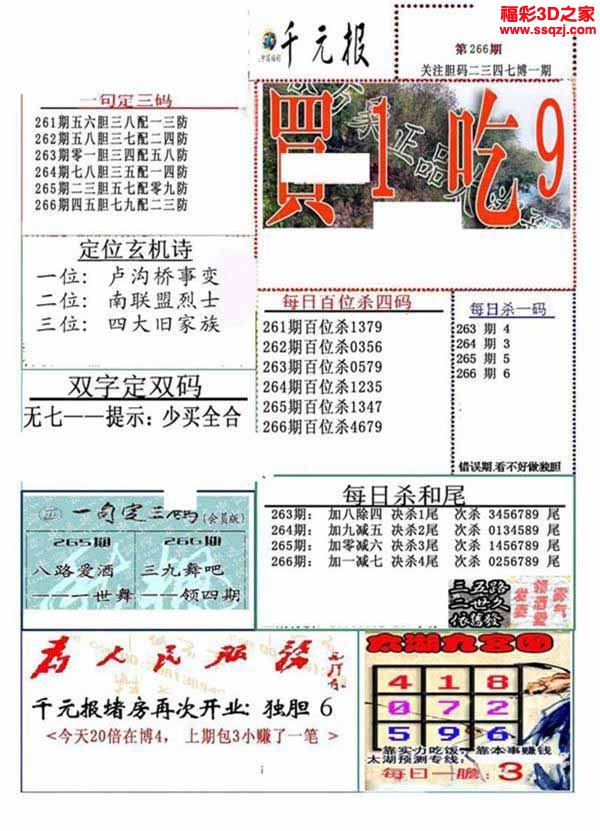 福彩3D之家
www.ssqzj.com
千元报
第266期
关注胆码二三四七博一期
一句定三码
261期五六胆三八配一三防
262期五八胆三七配二四防
263期零一胆三四配五八防
264期七八胆三五配一四防
265期二三胆五七配零九防
266期四五胆七九配二三防
買1吃9
定位玄机诗
一位: 卢沟桥事变
二位: 南联盟烈士
三位: 四大旧家族
每日百位杀四码
261期百位杀1379
262期百位杀0356
263期百位杀0579
264期百位杀1235
265期百位杀1347
266期百位杀4679
每日杀一码
263 期 4
264 期 3
265 期 5
266 期 6
错误期,看不好做独胆
双字定双码
无七——提示: 少买全合
一句定三码(会员版)
265期
266期
八路爱酒
——一世舞
三九舞吧
——领四期
每日杀和尾
263期: 加八除四 决杀1尾 次杀 3456789 尾
264期: 加九减五 决杀2尾 次杀 0134589 尾
265期: 加零减六 决杀3尾 次杀 1456789 尾
266期: 加一减七 决杀4尾 次杀 0256789 尾
三五路
二世久
依舊發
为人民服务
千元报堵房再次开业: 独胆 6
<今天20倍在博4, 上期包3小赚了一笔>
太湖九宫图
4 1 8
0 7 2
5 9 6
靠实力吃饭, 靠本事赚钱
太湖预测专线:
每日一胆: 3